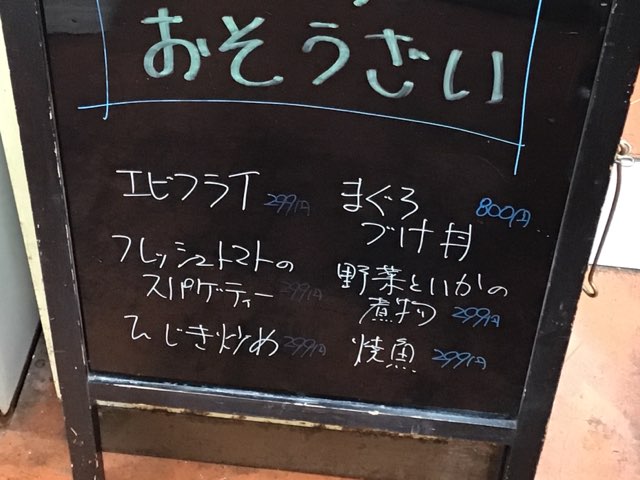 おそうざい
エビフライ 299円
フレッシュトマトの
スパゲティー 299円
ひじき炒め 299円
まぐろ 800円
づけ丼
野菜といかの
煮物 299円
焼魚 299円